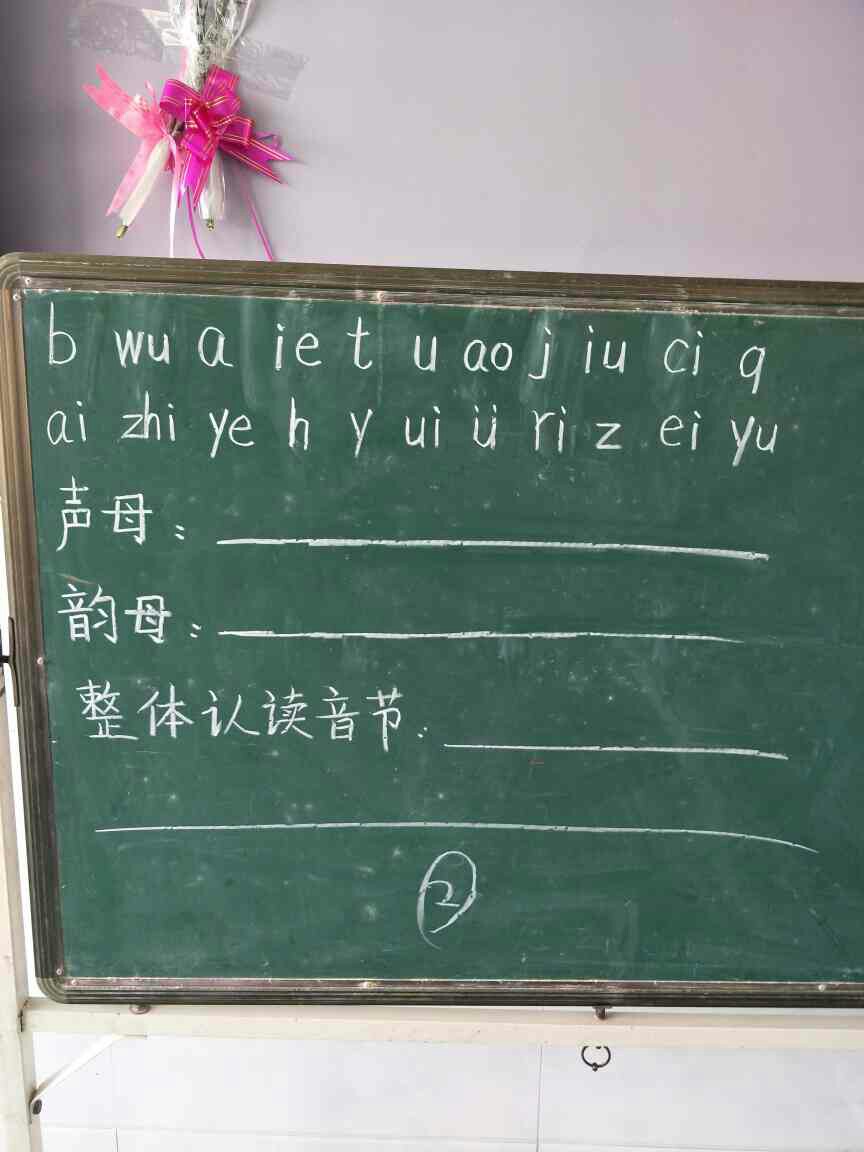 b wu a ie t u ao j iu ci q
ai zhi ye h y ui ü ri z ei yu
声母：
韵母：
整体认读音节：
②